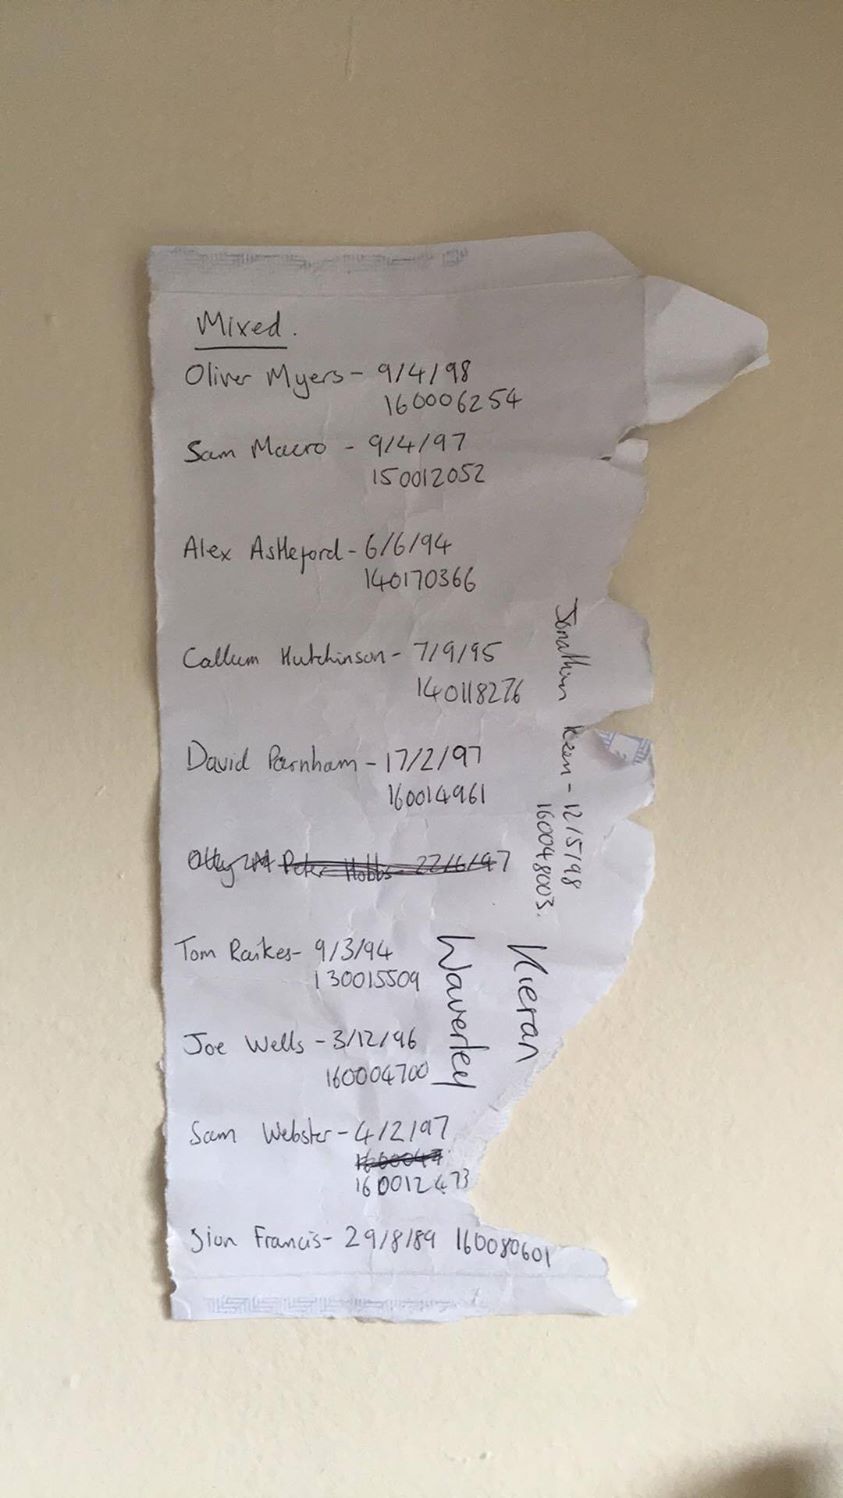 Mixed.
Oliver Myers - 9/4/98
160006254
Sam Macro - 9/4/97
150012052
Alex Astleford - 6/6/94
140170366
Callum Hutchinson - 7/9/95
140118276
David Parnham - 17/2/97
160014961
Peter Hobbs - 22/6/97
Tom Raikes - 9/3/94
130015509
Joe Wells - 3/12/96
160004700
Sam Webster - 4/2/97
160012473
Sion Francis - 29/8/89 160080601
Jonathan Keen - 12/5/98
160048003.
Kieran
Waverley